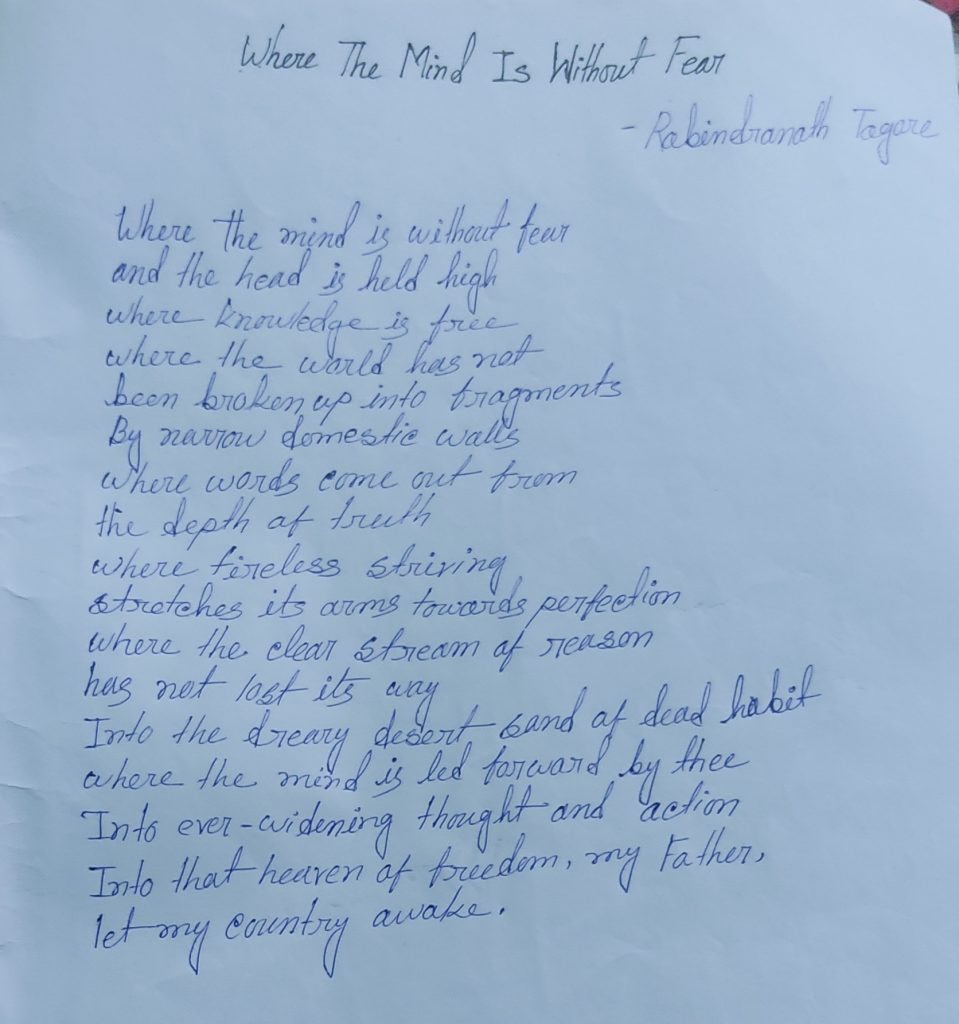 Where The Mind Is Without Fear
- Rabindranath Tagore
Where the mind is without fear
and the head is held high
where knowledge is free
where the world has not
been broken up into fragments
By narrow domestic walls
where words come out from
the depth of truth
where tireless striving
stretches its arms towards perfection
where the clear stream of reason
has not lost its way
Into the dreary desert sand of dead habit
where the mind is led forward by thee
Into ever-widening thought and action
Into that heaven of freedom, my Father,
let my country awake.